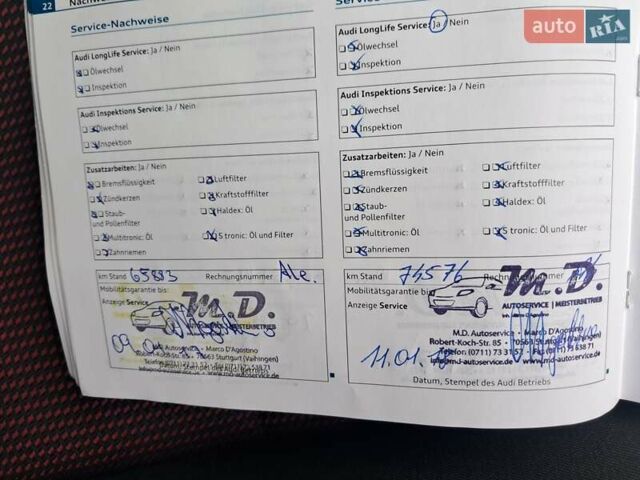 22
Service-Nachweise
Audi LongLife Service: Ja / Nein
Ölwechsel
Inspektion
Audi Inspektions Service: Ja / Nein
Ölwechsel
Inspektion
Zusatzarbeiten: Ja / Nein
Bremsflüssigkeit
Luftfilter
Zündkerzen
Kraftstofffilter
Staub-
und Pollenfilter
Haldex: Öl
Multitronic: Öl
S tronic: Öl und Filter
Zahnriemen
km Stand 65883 Rechnungsnummer
Mobilitätsgarantie bis:
Anzeige Service
M.D.
AUTOSERVICE | MEISTERBETRIEB
M.D. Autoservice - Marco D'Agostino
Robert-Koch-Str. 85 - 70563 Stuttgart (Vaihingen)
Audi LongLife Service: Ja / Nein
Ölwechsel
Inspektion
Audi Inspektions Service: Ja / Nein
Ölwechsel
Inspektion
Zusatzarbeiten: Ja / Nein
Bremsflüssigkeit
Luftfilter
Zündkerzen
Kraftstofffilter
Staub-
und Pollenfilter
Haldex: Öl
Multitronic: Öl
S tronic: Öl und Filter
Zahnriemen
km Stand 74576
Mobilitätsgarantie bis:
Anzeige Service
M.D.
AUTOSERVICE | MEISTERBETRIEB
M.D. Autoservice - Marco D'Agostino
Robert-Koch-Str. 85 - 70563 Stuttgart (Vaihingen)
Telefon (0711) 73 31 57 - Fax (0711) 73 56 38 71
info@md-autoservice.de www.md-autoservice.de
11.01.
Datum, Stempel des Audi Betriebs
auto RIA
.com